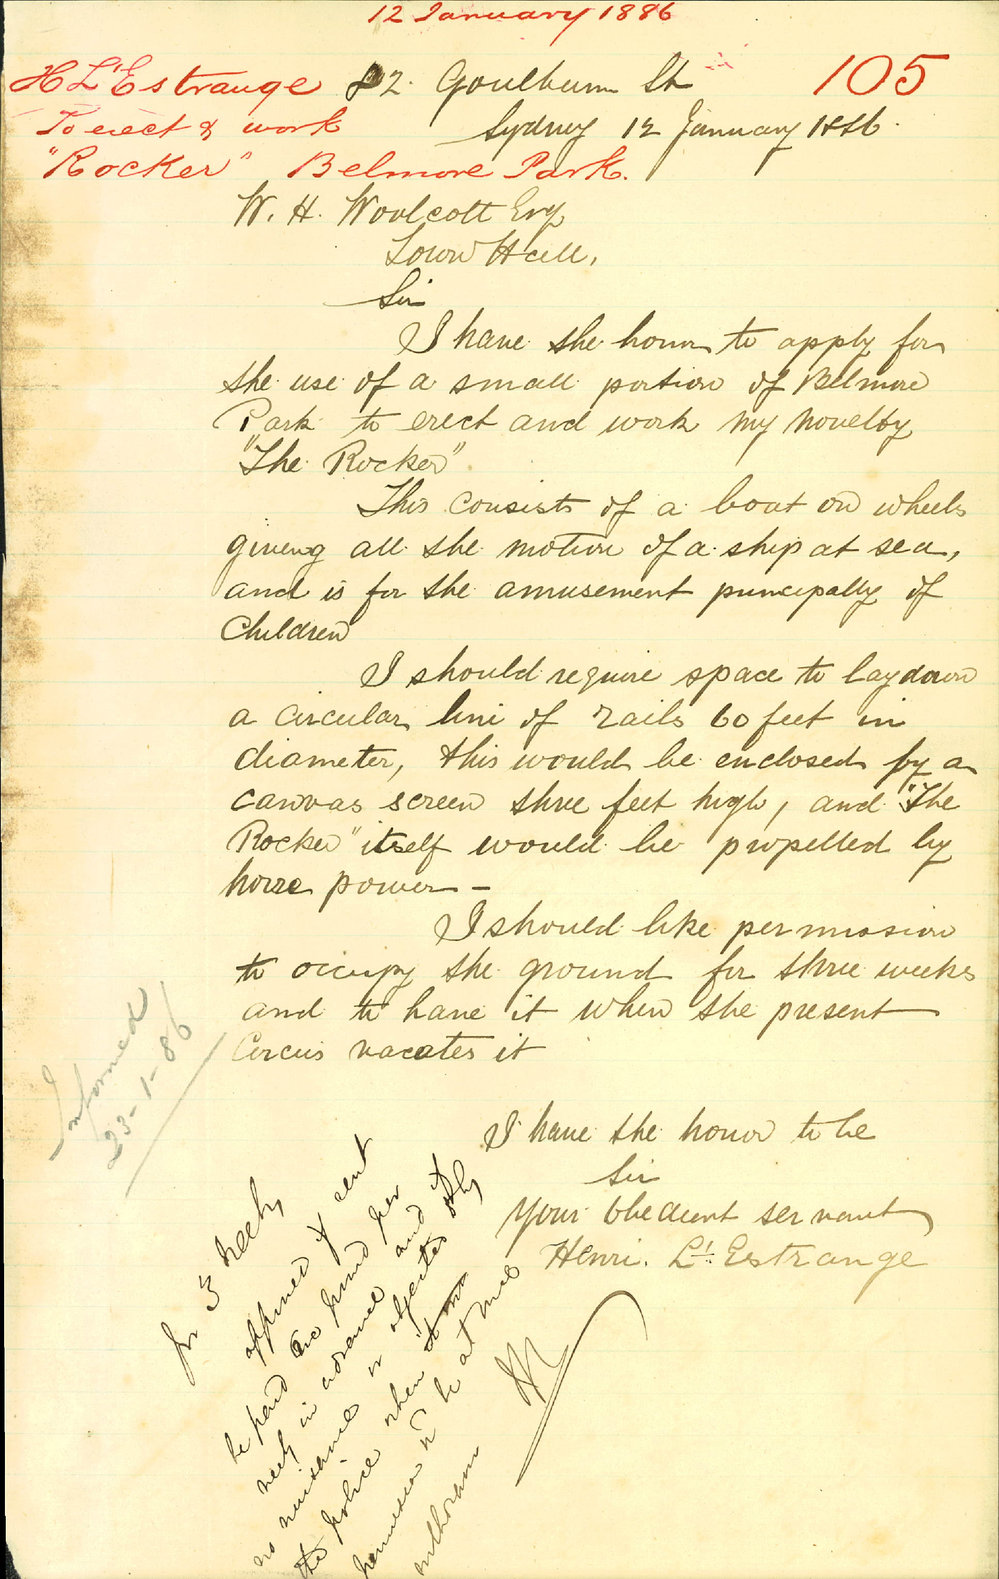 12 January 1886
105
H L'Estrange
To erect & work
"Rocker" Belmore Park.
82. Goulburn St
Sydney 12 January 1886.
W. H. Woolcott Esq
Town Hall,
Sir
I have the honor to apply for
the use of a small portion of Belmore
Park to erect and work my novelty
"The Rocker"
This consists of a boat on wheels
giving all the motion of a ship at sea,
and is for the amusement principally of
Children
I should require space to lay down
a circular line of rails 60 feet in
diameter, this would be enclosed by a
canvas screen three feet high, and "The
Rocker" itself would be propelled by
horse power -
I should like permission
to occupy the ground for three weeks
and to have it when the present
Circus vacates it
I have the honor to be
Sir
Your obedient servant
Henri. L'Estrange
Informed
23-1-86
for 3 weeks
approved if rent
be paid one pound per
week in advance and if
no nuisance or objected to by
the police when
permission to be at once
withdrawn